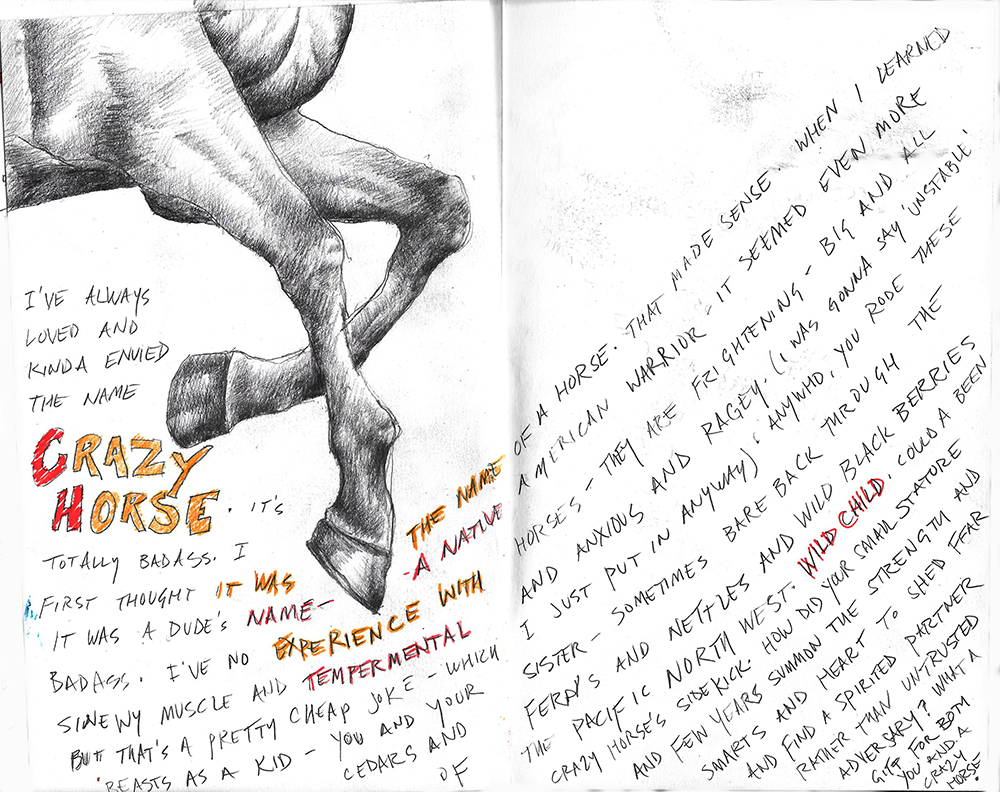 I'VE ALWAYS
LOVED AND
KINDA ENVIED
THE NAME
CRAZY
HORSE. IT'S
TOTALLY BADASS. I
FIRST THOUGHT IT WAS THE NAME
OF A HORSE. THAT MADE SENSE. WHEN I LEARNED
IT WAS A DUDE'S NAME – A NATIVE
AMERICAN WARRIOR – IT SEEMED EVEN MORE
BADASS. I'VE NO EXPERIENCE WITH
HORSES – THEY ARE FRIGHTENING – BIG AND ALL
SINEWY MUSCLE AND TEMPERMENTAL
AND ANXIOUS AND RAGEY. (I WAS GONNA SAY 'UNSTABLE'
BUT THAT'S A PRETTY CHEAP JOKE – WHICH
I JUST PUT IN ANYWAY). ANYWHO, YOU RODE THESE
BEASTS AS A KID – YOU AND YOUR
SISTER – SOMETIMES BARE BACK THROUGH THE
CEDARS AND
FERNS AND NETTLES AND WILD BLACK BERRIES
OF
THE PACIFIC NORTH WEST. WILD CHILD. COULD A BEEN
CRAZY HORSE'S SIDEKICK. HOW DID YOUR SMALL STATURE
AND FEW YEARS SUMMON THE STRENGTH AND
SMARTS AND HEART TO SHED FEAR
AND FIND A SPIRITED PARTNER
RATHER THAN UNTRUSTED
ADVERSARY? WHAT A
GIFT FOR BOTH
YOU AND A
CRAZY
HORSE.